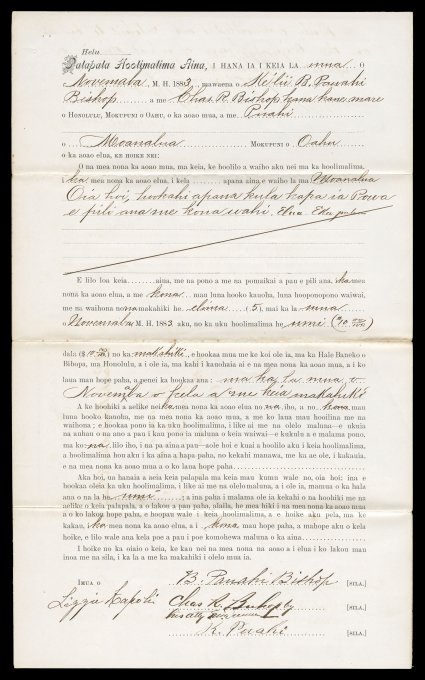 Helu
Palapala Hoolimalima Aina, I HANA IA I KEIA LA mua O
Novemaba, M. H. 1883, mawaena o Ke Lii B. Pauahi
Bishop a me Chas. R. Bishop kana kane mare
o HONOLULU, MOKUPUNI O OAHU, o ka aoao mua, a me Puahi
o Moanalua MOKUPUNI O Oahu
o ka aoao elua, KE HOIKE NEI:
O na mea nona ka aoao mua, ma keia, ke hoolilo a waiho aku nei ma ka hoolimalima,
i ka mea nona ka aoao elua, i kela apana aina, e waiho la ma Moanalua
Oia hoi, hookahi apana kula kapa ia Powa
e pili ana me kona wahi.
E lilo loa keia aina, me na pono a me na pomaikai a pau e pili ana, ka mea
nona ka aoao elua, a me kona mau luna hooko kauoha, luna hooponopono waiwai,
me na waihona no na makahiki he elima (5) mai ka la mua
o Novemaba M. H. 1883 aku, no ka uku hoolimalima he umi
dala ($10.) no ka makahiki, e hookaa mua me ke koi ole ia, ma ka Hale Baneko o
Bihopa, ma Honolulu, a i ole ia, ma kahi i kauohaia ai e na mea nona ka aoao mua, a i ko
lakou mau hope paha, a penei ka hookaa ana: ma ka la mua o
Novemaba o kela a me keia makahiki
A ke hoohiki a aelike nei ka mea nona ka aoao elua no na iho, a no mau
luna hooko kauoha, me na mea nona ka aoao mua, a me ko lakou mau luna hooko a me na
waihona; e hookaa pono ia ka uku hoolimalima, i like ai me na olelo maluna—e ukuia
na auhau o na ano a pau i kau pono ia maluna o keia waiwai—e kukulu a e malama pono,
ma ko na lilo iho, i na pa aina a pau—aole hoi e kuai a hoolilo aku i keia hoolimalima,
a hoolimalima hou aku i ka aina a hapa paha, no kekahi manawa, me ka ae ole, i kakauia,
e na mea nona ka aoao mua a o ko lana hope paha.
Aka hoi, un hanaia a aeia keia palapala ma keia mau kumu wale no, oia hoi: ina e
hookaa oleia ka uku hoolimalima, i like ai me na olelo maluna, a i ole ia, mamua o ka hala
ana o na la he umi; a ina paha i malama ole ia kekahi o na hoohiki me na
aelike o keia palapala, a o lakou a pau paha, alaila, he mea hiki i na mea nona ka aoao mua
a o ko lakou hope paha, e hoopau wale i keia hoolimalima, a e hoike aku pela, ma ke
kakau, i ka mea nona ka aoao elua, a i kona mau hope paha, a mahope aku o kela
hoike, e lilo wale ana kela poe a pau i poe komohewa maluna o ka aina.
I hoike no ka oiaio o keia, ke kau nei na mea nona na aoao a i elua i ko lakou mau
inoa me na sila, i ka la a me ka makahiki i olelo mua ia.
IMUA O B. Pauahi Bishop [SILA.]
Lizzie Kapoli Chas R. Bishop [SILA.]
K. Puahi [SILA.]